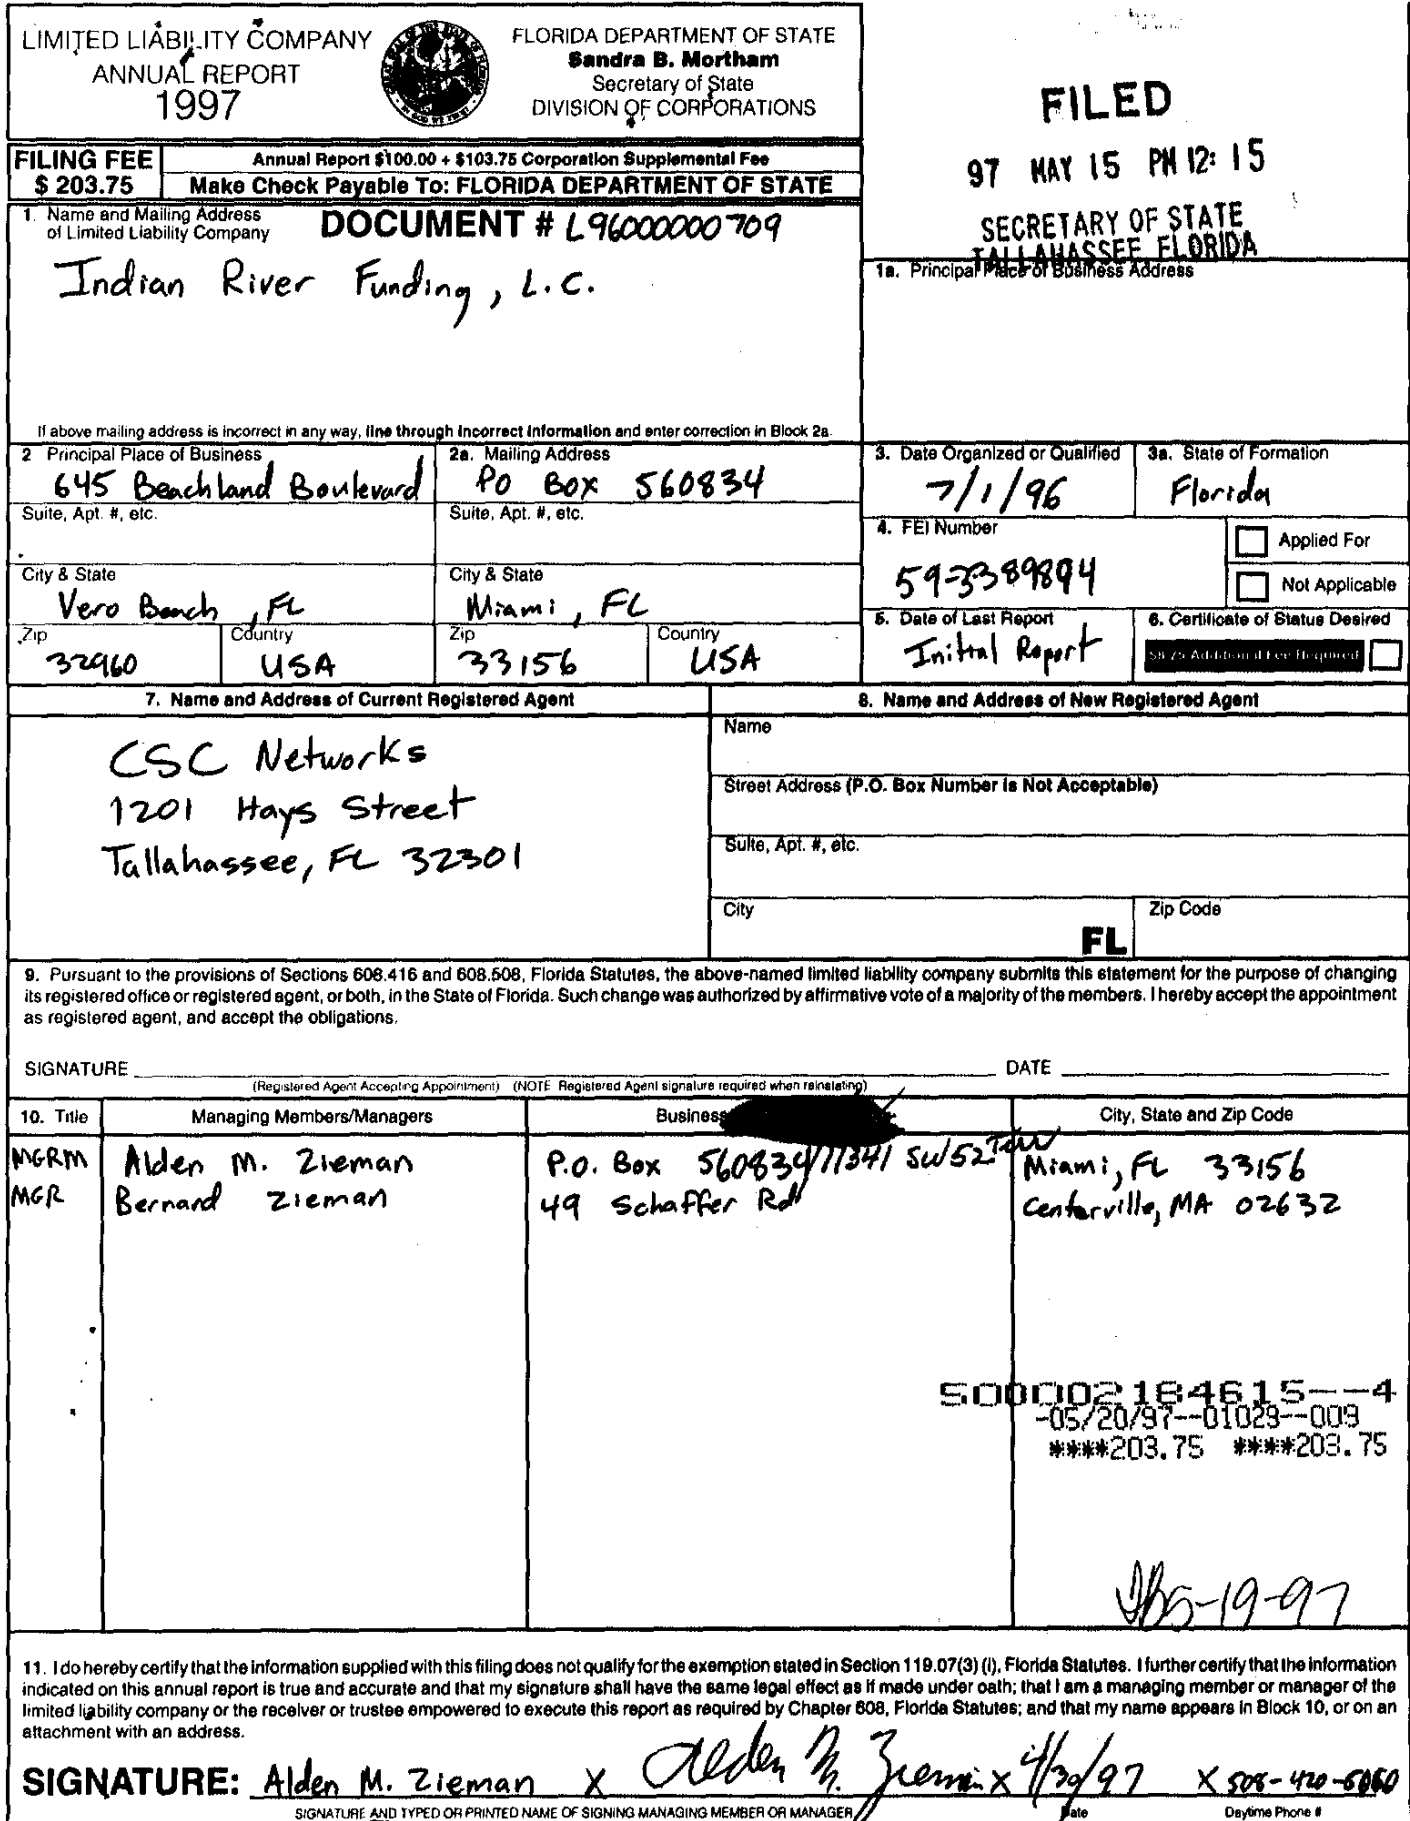 LIMITED LIABILITY COMPANY
ANNUAL REPORT
1997
FLORIDA DEPARTMENT OF STATE
Sandra B. Mortham
Secretary of State
DIVISION OF CORPORATIONS
FILED
97 MAY 15 PM 12: 15
SECRETARY OF STATE
TALLAHASSEE, FLORIDA
FILING FEE
$ 203.75
Annual Report $100.00 + $103.75 Corporation Supplemental Fee
Make Check Payable To: FLORIDA DEPARTMENT OF STATE
1. Name and Mailing Address
of Limited Liability Company
DOCUMENT # L96000000709
Indian River Funding, L.C.
1a. Principal Place of Business Address
If above mailing address is incorrect in any way, line through incorrect information and enter correction in Block 2a.
2 Principal Place of Business
645 Beachland Boulevard
2a. Mailing Address
PO Box 560834
3. Date Organized or Qualified
7/1/96
3a. State of Formation
Florida
Suite, Apt. #, etc.
Suite, Apt. #, etc.
4. FEI Number
59-3389894
Applied For
Not Applicable
City & State
Vero Beach, FL
City & State
Miami, FL
5. Date of Last Report
Initial Report
6. Certificate of Status Desired
$8.75 Additional Fee Required
Zip
32960
Country
USA
Zip
33156
Country
USA
7. Name and Address of Current Registered Agent
CSC Networks
1201 Hays Street
Tallahassee, FL 32301
8. Name and Address of New Registered Agent
Name
Street Address (P.O. Box Number is Not Acceptable)
Suite, Apt. #, etc.
City
FL
Zip Code
9. Pursuant to the provisions of Sections 608.416 and 608.508, Florida Statutes, the above-named limited liability company submits this statement for the purpose of changing
its registered office or registered agent, or both, in the State of Florida. Such change was authorized by affirmative vote of a majority of the members. I hereby accept the appointment
as registered agent, and accept the obligations.
SIGNATURE
DATE
(Registered Agent Accepting Appointment) (NOTE Registered Agent signature required when reinstating)
10. Title Managing Members/Managers Business City, State and Zip Code
MGRM Alden M. Zieman P.O. Box 560834/11341 SW 52 Miami, FL 33156
MGR Bernard Zieman 49 Schaffer Rd Centerville, MA 02632
500002184615--4
-05/20/97--01029--009
****203.75 ****203.75
5-19-97
11. I do hereby certify that the information supplied with this filing does not qualify for the exemption stated in Section 119.07(3) (i), Florida Statutes. I further certify that the information
indicated on this annual report is true and accurate and that my signature shall have the same legal effect as if made under oath; that I am a managing member or manager of the
limited liability company or the receiver or trustee empowered to execute this report as required by Chapter 608, Florida Statutes; and that my name appears in Block 10, or on an
attachment with an address.
SIGNATURE: Alden M. Zieman X Alden M. Zieman X 4/30/97 X 508-420-5060
SIGNATURE AND TYPED OR PRINTED NAME OF SIGNING MANAGING MEMBER OR MANAGER
Date
Daytime Phone #